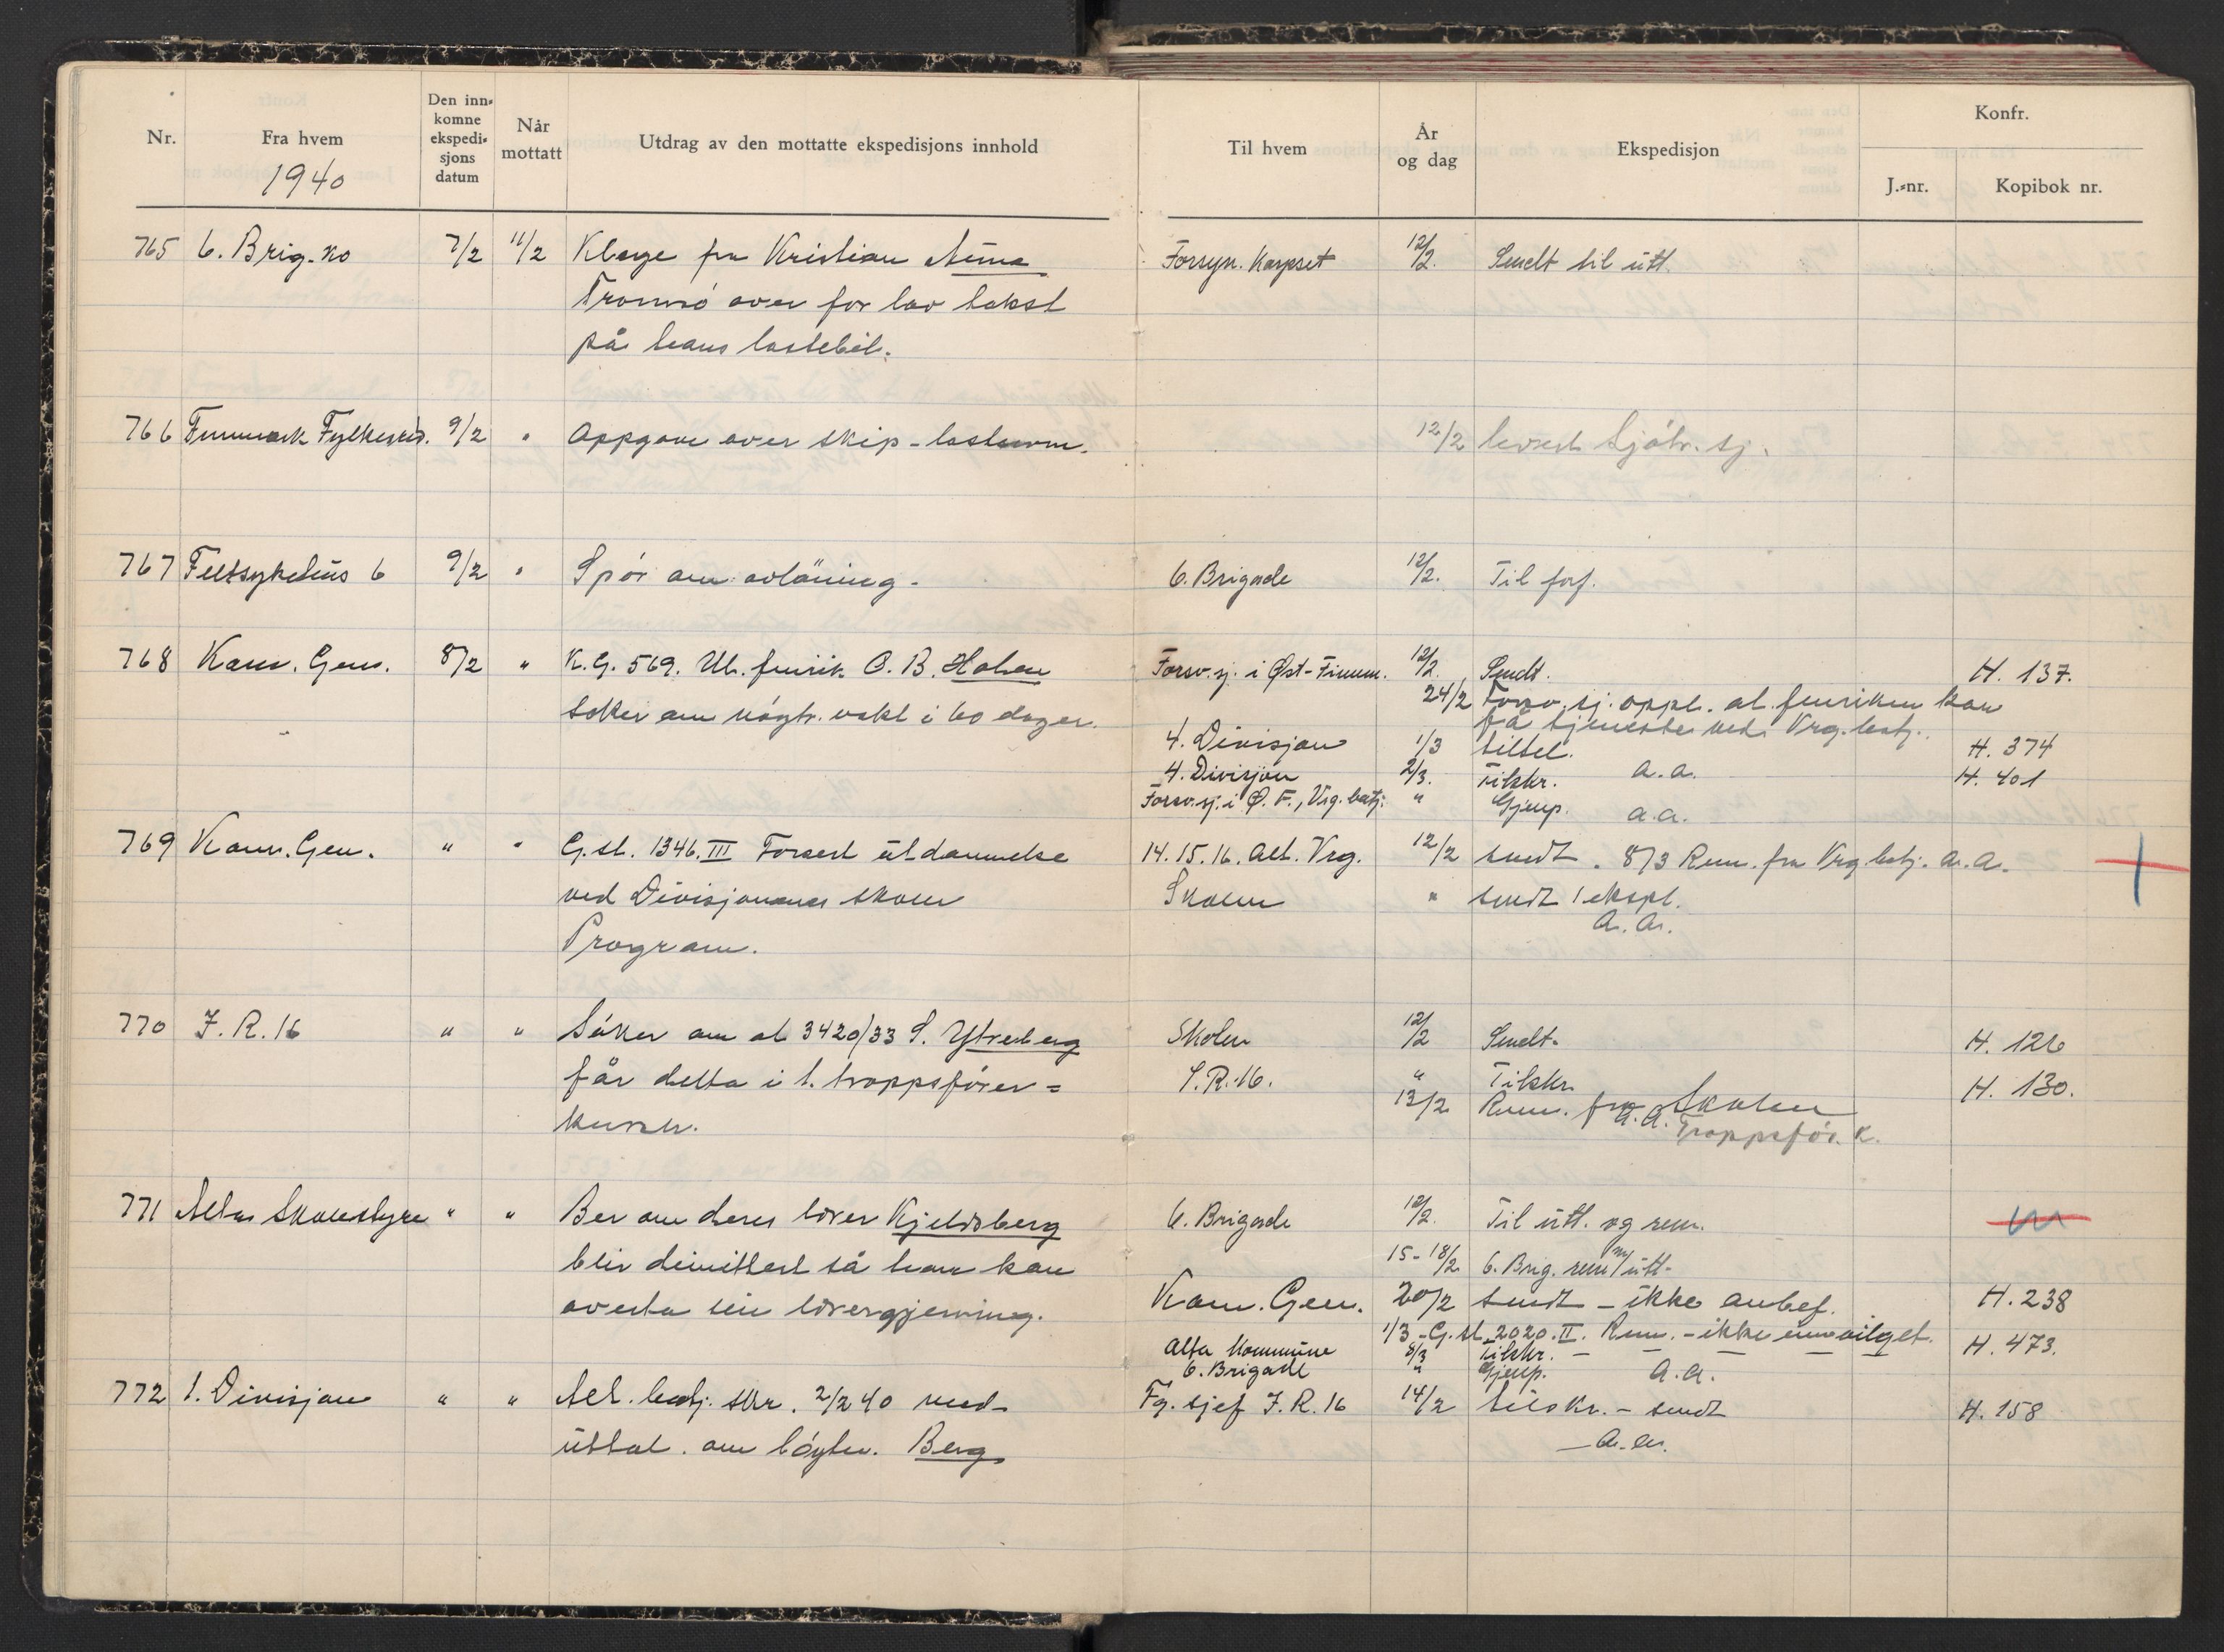 Nr.
Fra hvem
Den inn-
komne
ekspedi-
sjons
datum
Når
mottatt
Utdrag av den mottatte ekspedisjons innhold
1940
765 6. Brig. ko 7/2 11/2 Klage fra Kristian
Tromsö over for lav takst
på hans lastebil.
766 Finnmark Fylkesred. 9/2 " Oppgave over skip - lasterom.
767 Feltsykehus 6 9/2 " Spör om avlöning.
768 Kom. Gen. 8/2 " K.G. 569. Ut. fenrik O. B. Holen
söker om nöytr. vakt i 60 dager.
769 Kom. Gen. " " G.st. 1346. III Forsert utdannelse
ved Divisjonenes skoler
Program.
770 I. R. 16 " " Söker om at 3420/33 S. Ytreberg
får delta i t. troppsförer-
kursen.
771 Alta Skolestyre " " Ber om deres lærer Kjeldsberg
blir dimittert så han kan
overta sin lærergjerning.
772 1. Divisjon " " Alt. batj. skr. 2/2 40 med
uttal. om löytn. Berg
Til hvem
År
og dag
Ekspedisjon
Konfr.
J.-nr.
Kopibok nr.
Forsyn. Korpset 12/2. Sendt til utt.
12/2 levert Sjötr. sj.
6. Brigade 12/2. Til forf.
Forsv. sj. i Øst-Finnm. 12/2. Sendt. H. 137.
24/2 Forsv. sj. oppl. at fenriken kan
få tjeneste ved Vrg. batj.
4. Divisjon 1/3 tiltel. a.a. H. 374
4. Divisjon 2/3. Tilskr. H. 401
Forsv. sj. i Ø. F., Vrg. batj. " Gjenp. a.a.
14. 15. 16. Alt. Vrg. 12/2 sendt. 8/3 Rem. fra Vrg. batj. a.a.
Skolen " sendt 1 ekspl.
a.a.
Skolen 12/2 Sendt. H. 126
I.R. 16. " Tilskr. H. 130.
13/2 Rem. fra Skolen
a.a. Troppsför. K.
6. Brigade 12/2. Til utt. og rem.
15-18/2 6. Brig. rem m/ utt.
Kom. Gen. 20/2 sendt - ikke anbef. H. 238
1/3 - G. st. 2020. II. Rem. - ikke innvilget.
Alta Kommune 8/3 Tilskr. H. 473.
6. Brigade " Gjenp. a.a.
Fg. sjef I. R. 16 14/2 tilskr. - sendt H. 158
a.a.